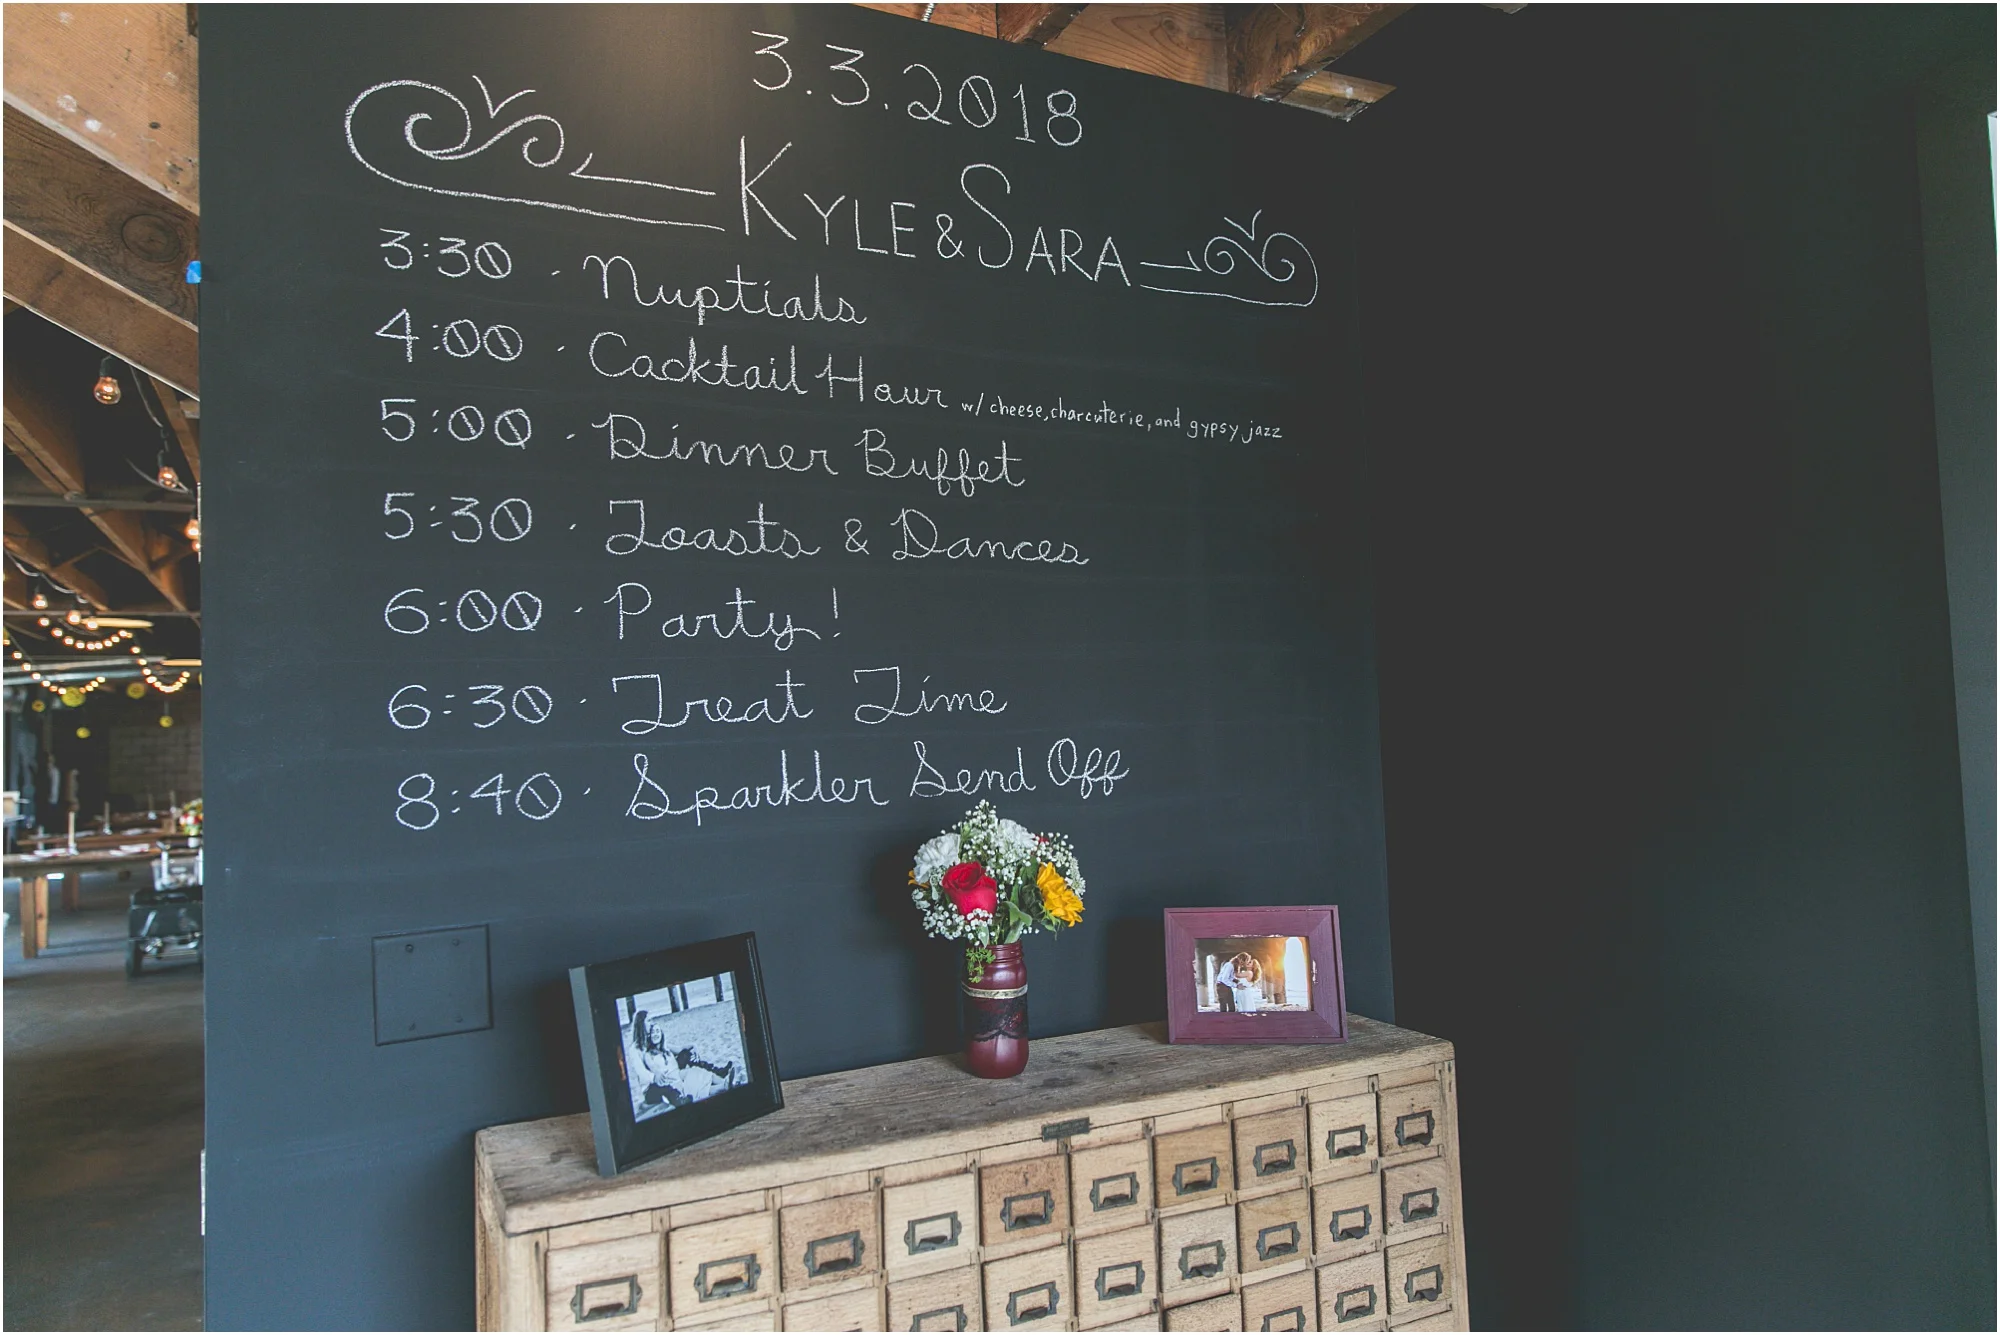 3.3.2018
KYLE & SARA
3:30 · Nuptials
4:00 · Cocktail Hour w/ cheese, charcuterie, and gypsy jazz
5:00 · Dinner Buffet
5:30 · Toasts & Dances
6:00 · Party!
6:30 · Treat Time
8:40 · Sparkler Send Off